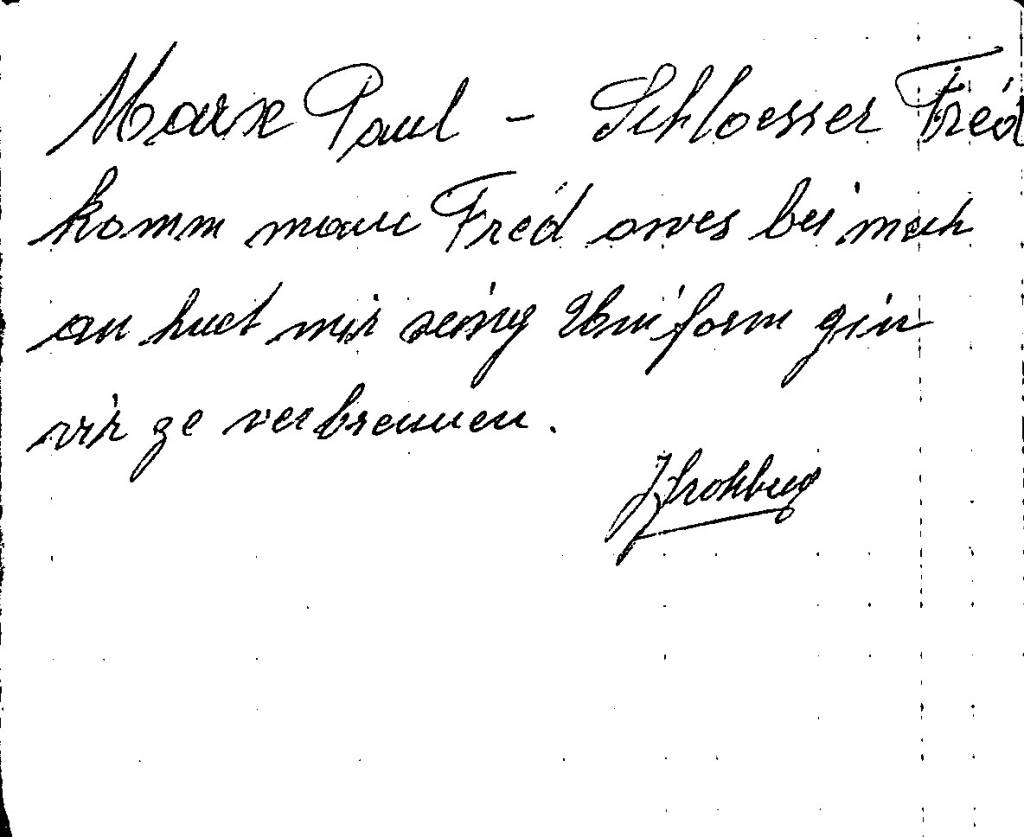 Marx Paul - Schloesser Fréd
komm mam Fréd owes bei mech
an huet mir seing Uniform gin
vir ze verbrennen.